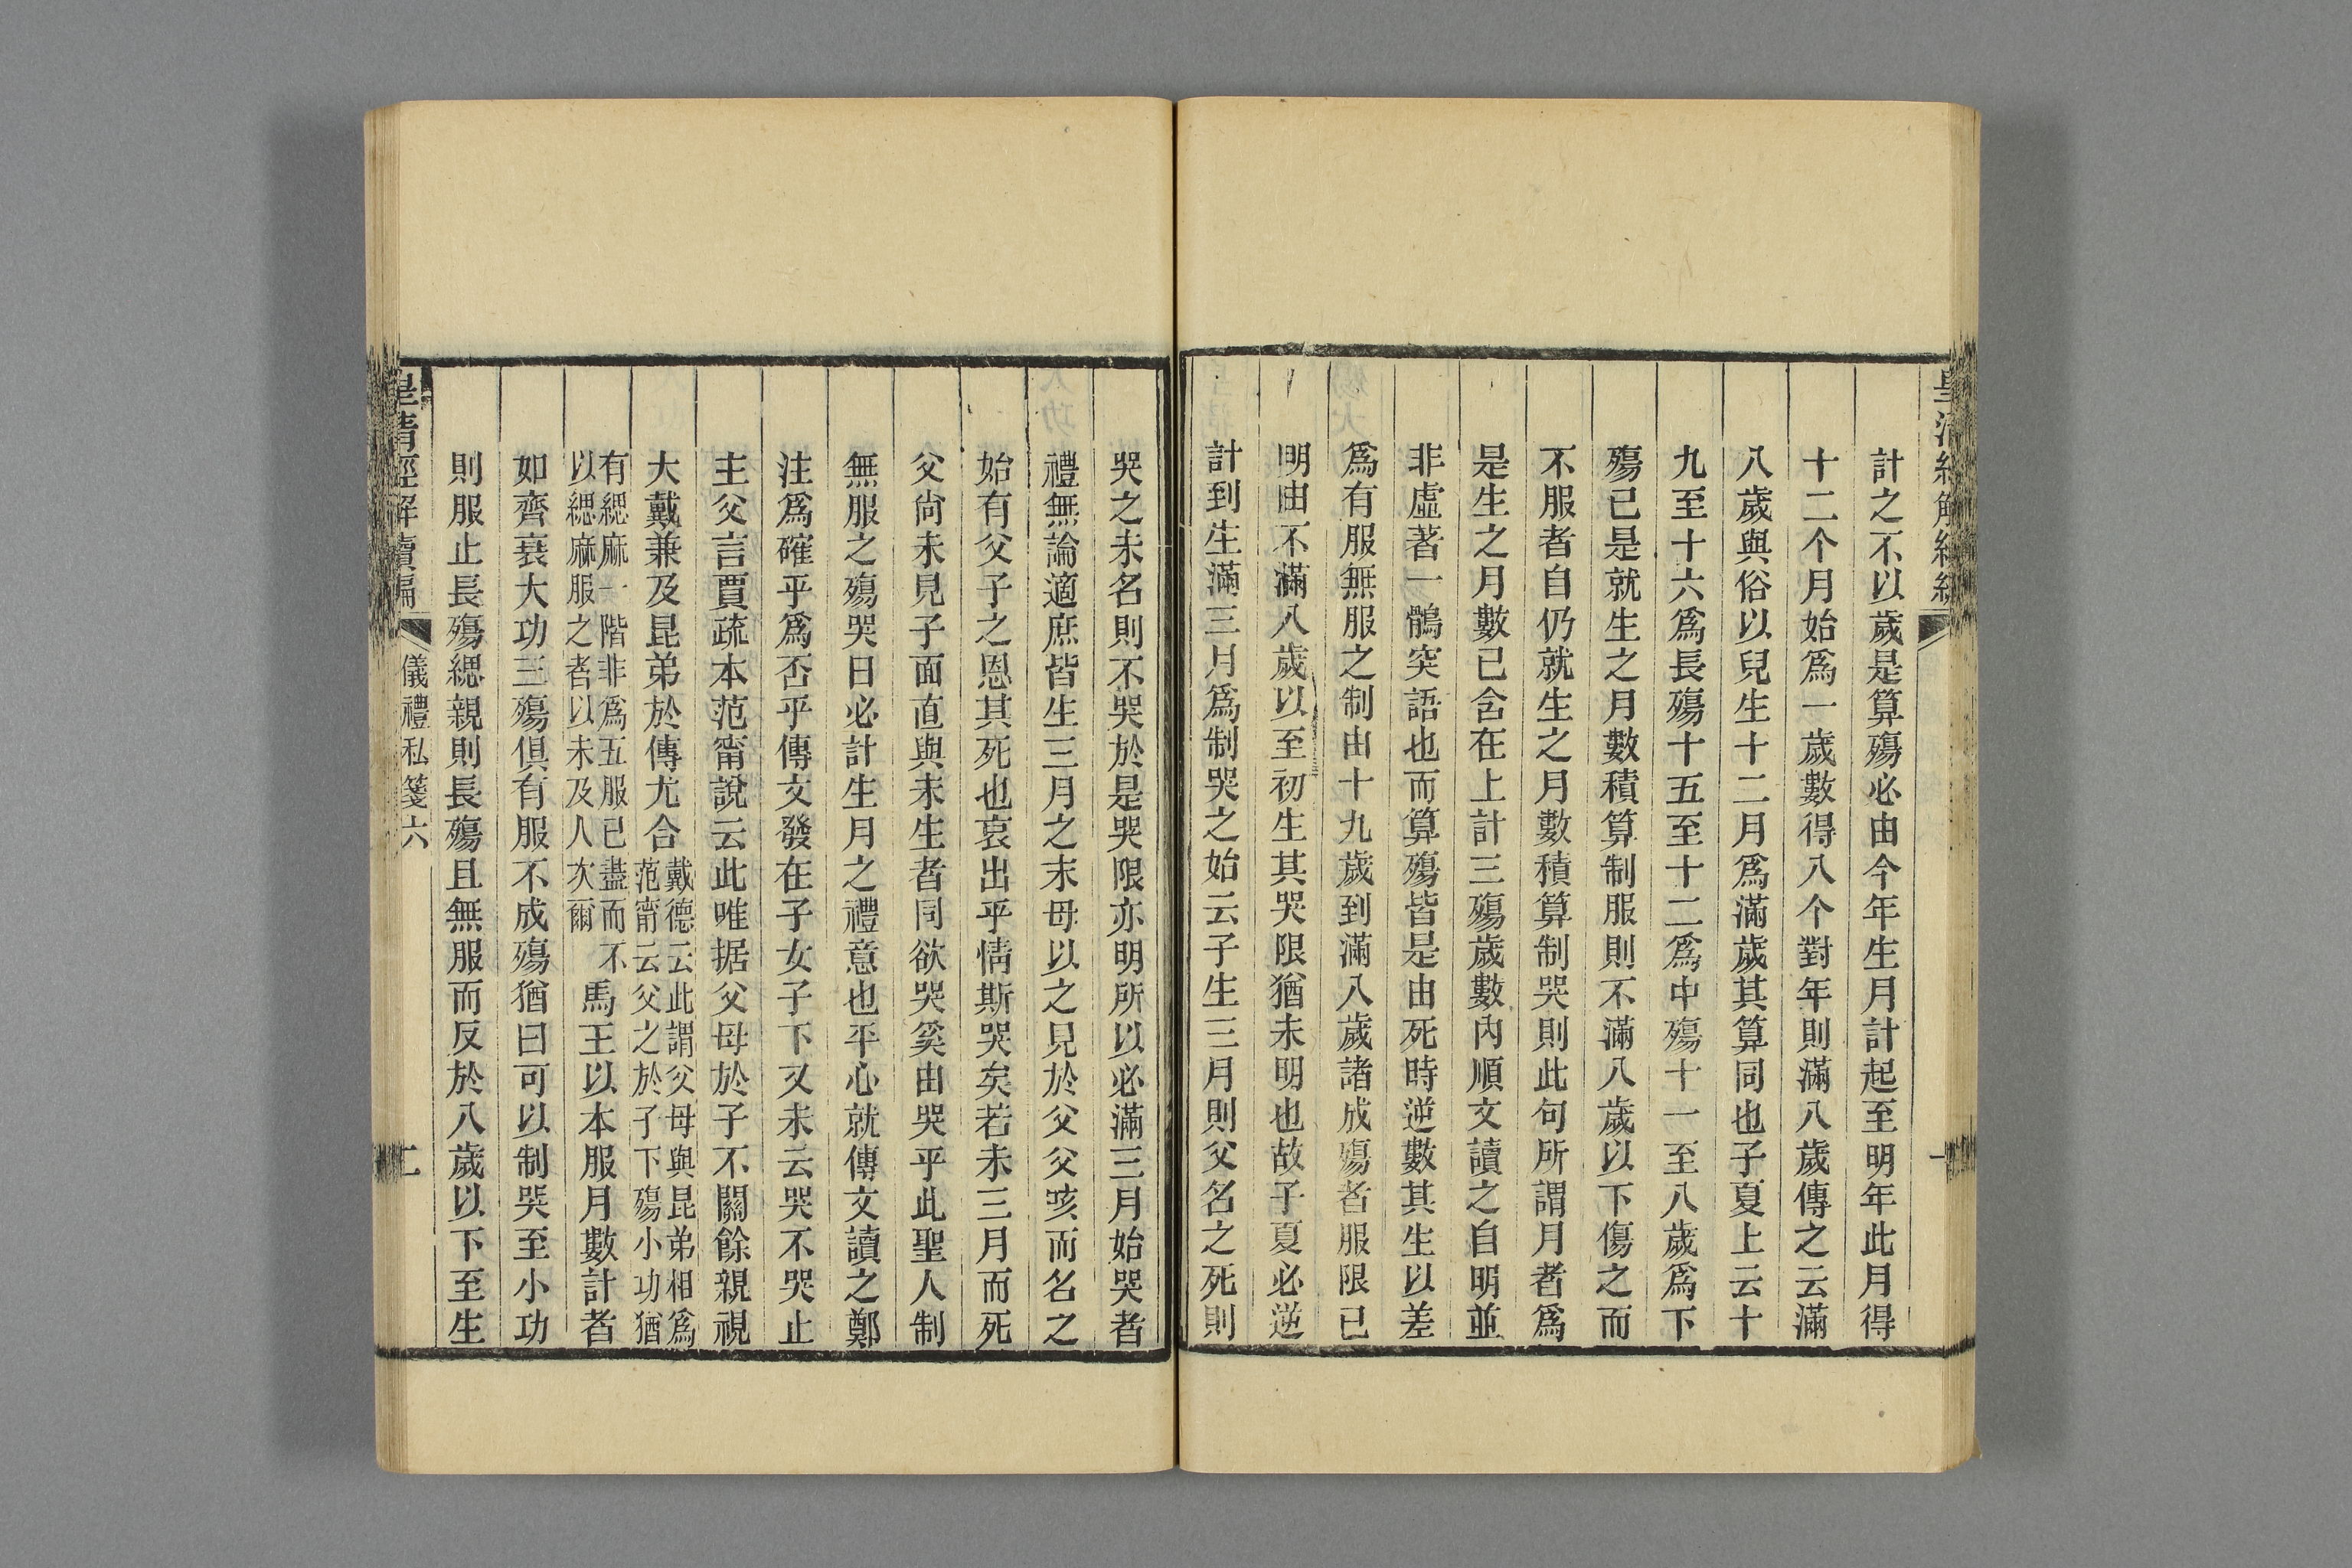 計之不以歲是算殤必由今年生月計起至明年此月得
十二个月始爲一歲數得八个對年則滿八歲傳之云滿
八歲與俗以兒生十二月爲滿歲其算同也子夏上云十
九至十六爲長殤十五至十二爲中殤十一至八歲爲下
殤已是就生之月數積算制服則不滿八歲以下傷之而
不服者自仍就生之月數積算制哭則此句所謂月者爲
是生之月數已含在上計三殤歲數內順文讀之自明並
非虛著一鶻突語也而算殤皆是由死時逆數其生以差
爲有服無服之制由十九歲到滿八歲諸成殤者服限已
明由不滿八歲以至初生其哭限猶未明也故子夏必逆
計到生滿三月爲制哭之始云子生三月則父名之死則
哭之未名則不哭於是哭限亦明所以必滿三月始哭者
禮無論適庶皆生三月之末母以之見於父父咳而名之
始有父子之恩其死也哀出乎情斯哭矣若未三月而死
父尙未見子面直與未生者同欲哭奚由哭乎此聖人制
無服之殤哭日必計生月之禮意也平心就傳文讀之鄭
注爲確乎爲否乎傳文發在子女子下又未云哭不哭止
主父言賈疏本范甯說云此唯据父母於子不關餘親視
大戴兼及昆弟於傳尤合戴德云此謂父母與昆弟相爲
范甯云父之於子下殤小功猶
有緦麻一階非爲五服已盡而不
以緦麻服之者以未及人次爾馬王以本服月數計者
如齊衰大功三殤俱有服不成殤猶曰可以制哭至小功
則服止長殤緦親則長殤且無服而反於八歲以下至生
皇清經解續編
儀禮私箋六
二